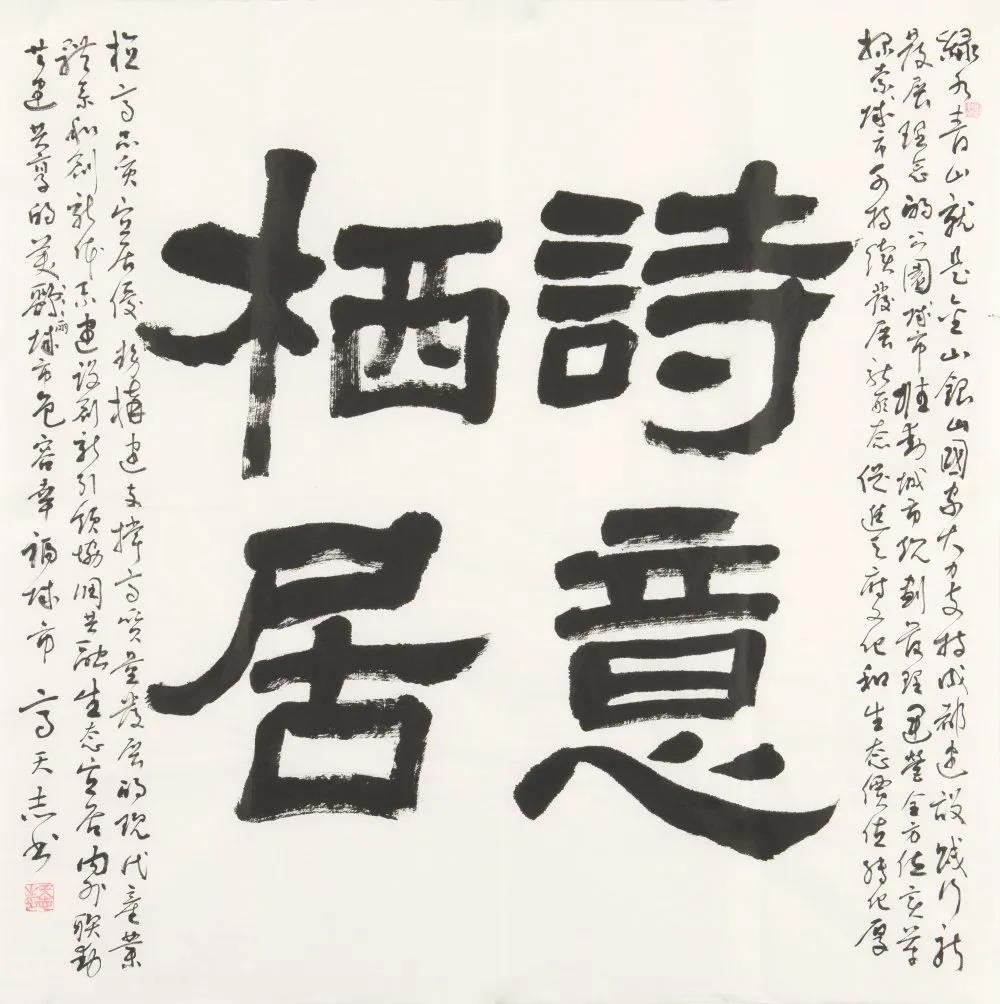 綠水青山就是金山銀山國家大力支持成都建設踐行新
發展理念的公園城市推動城市規劃管理運營全方位變革
探索城市可持續發展新形态促進天府文化和生态價值轉化厚
詩意
栖居
植高品质宜居優势構建支撑高质量發展的現代産業
體系和創新体系建设創新引領協調共融生态宜居內外聯動
共建共享的美丽城市包容幸福城市 高天志书